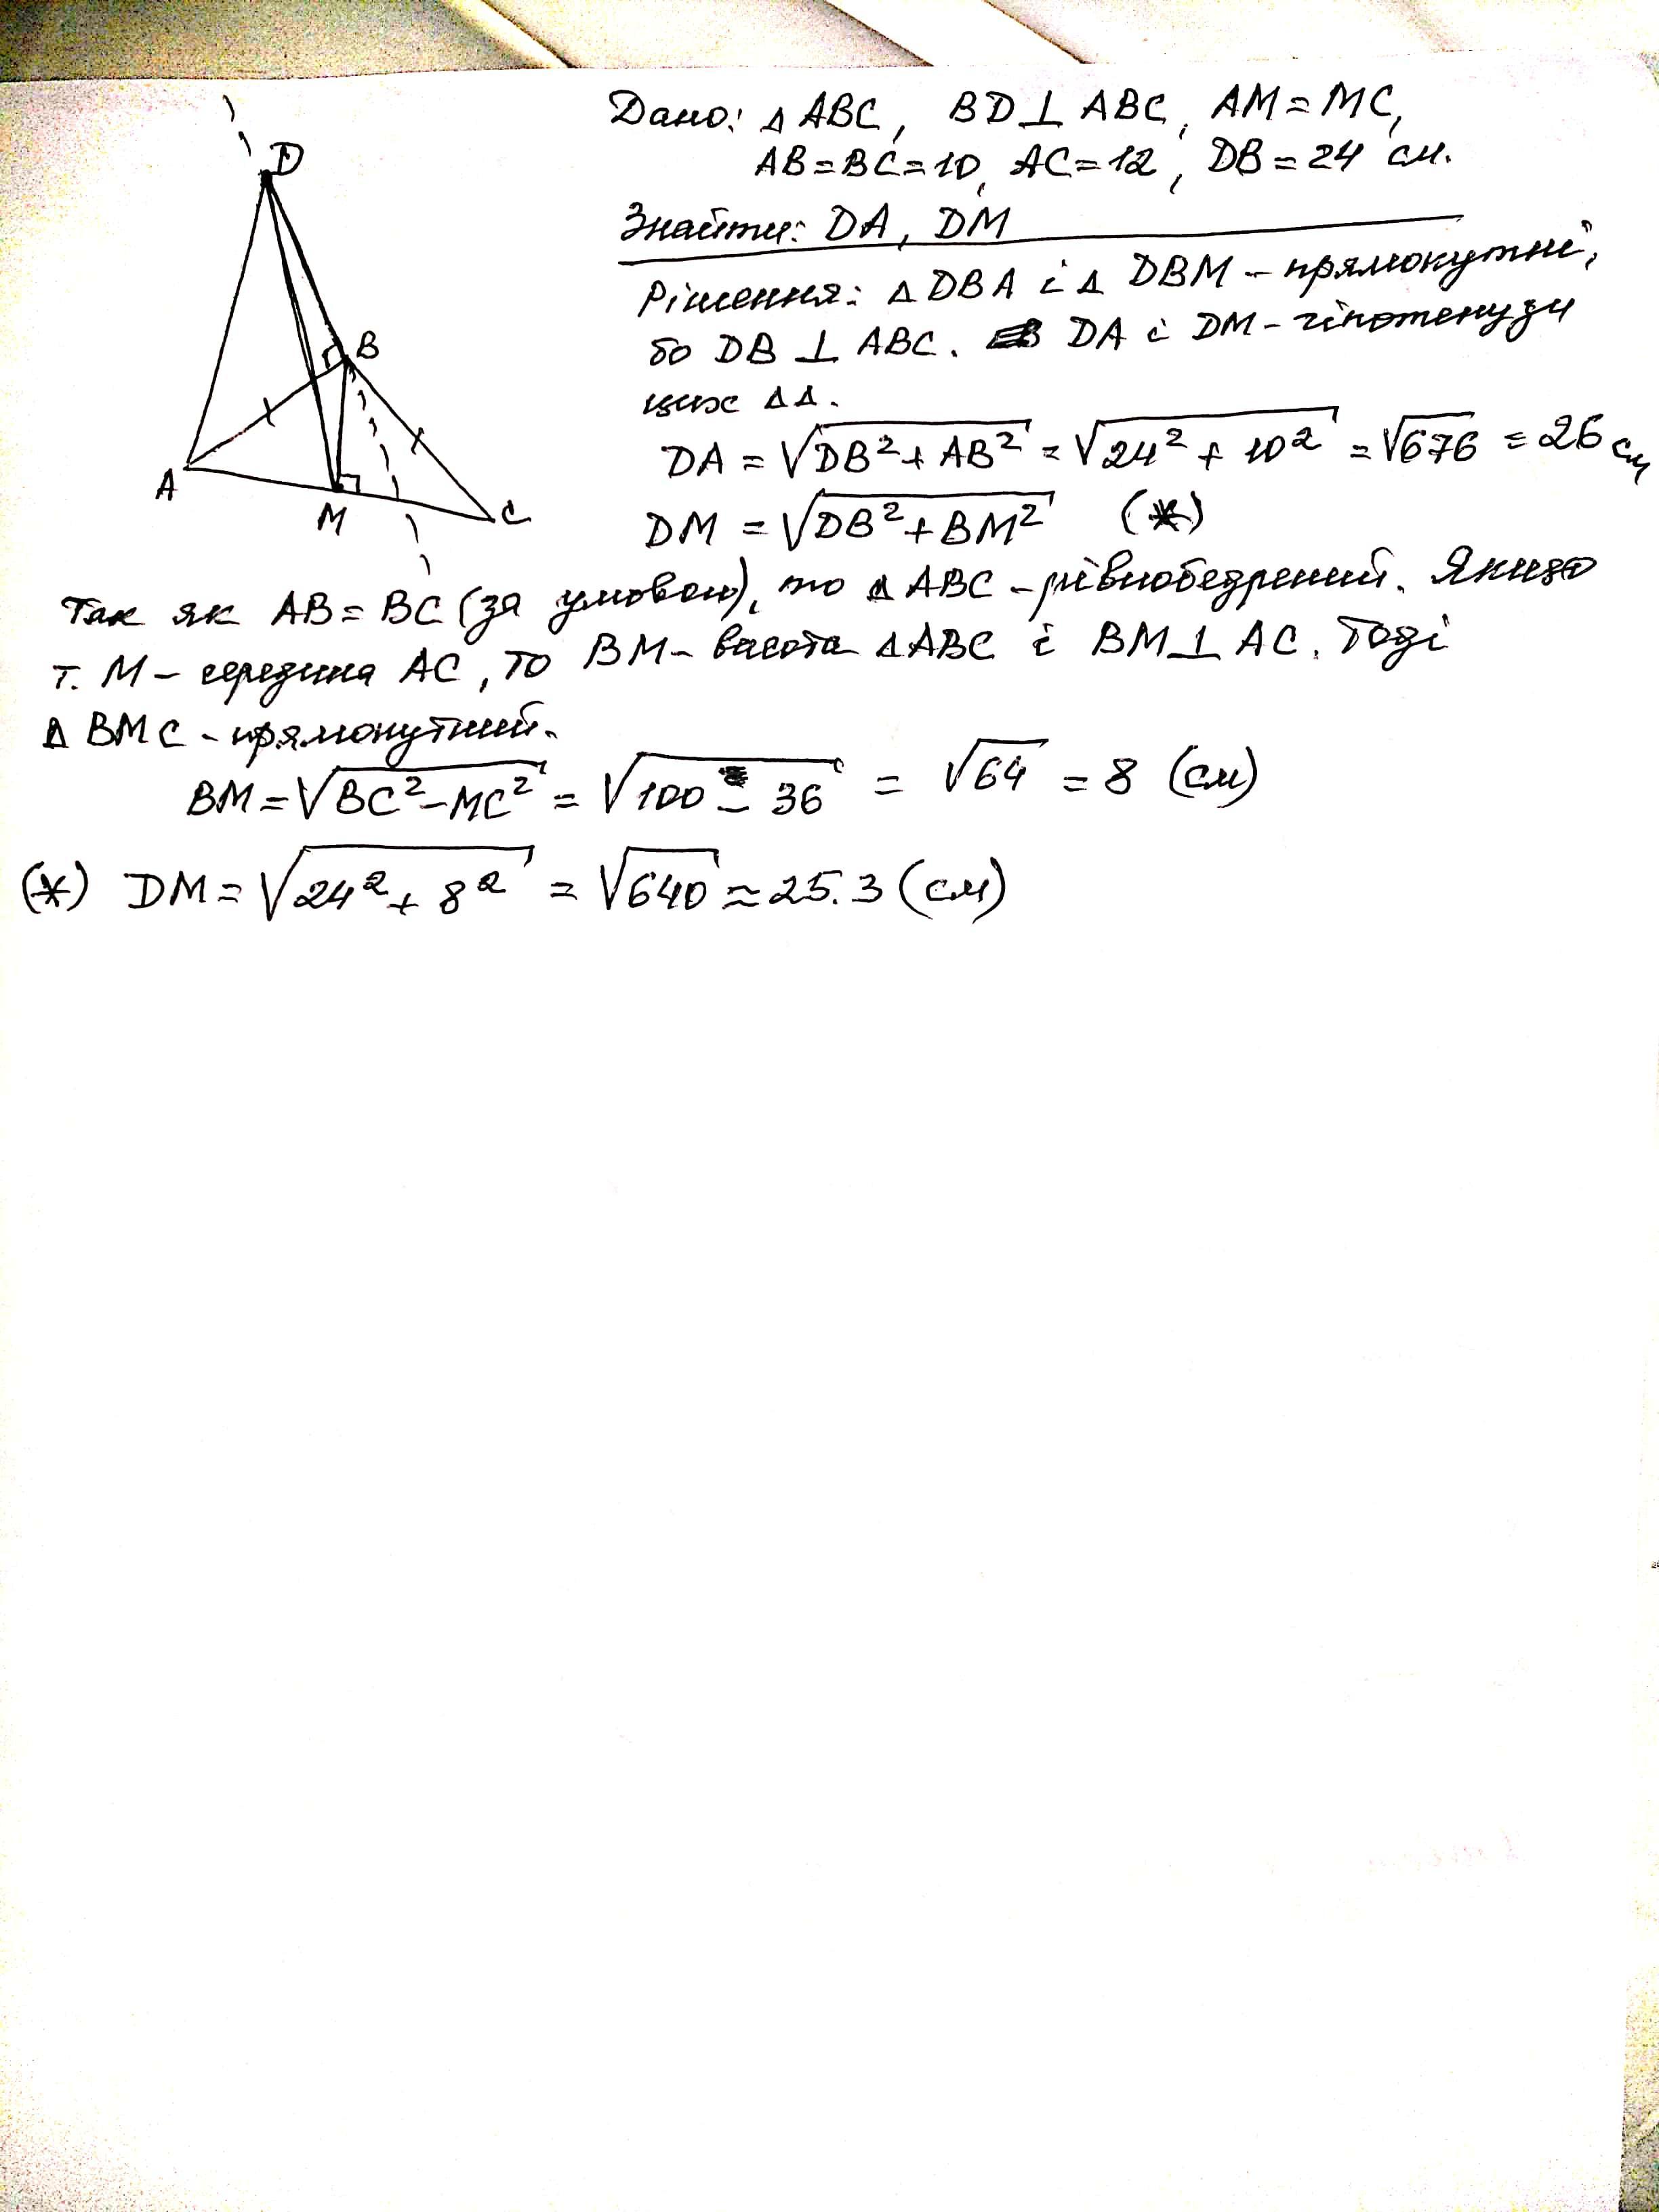 D
B
A
M
C
Дано: △ ABC, BD⊥ABC, AM=MC,
AB=BC=10, AC=12, DB=24 см.
Знайти: DA, DM
Рішення: △ DBA і △ DBM - прямокутні,
бо DB ⊥ ABC. DA і DM - гіпотенузи
цих △△.
DA = √(DB²+AB²) = √(24²+10²) = √676 = 26 см
DM = √(DB²+BM²) (*)
Так як AB=BC (за умовою), то △ ABC - рівнобедрений. Якщо
т. M - середина AC, то BM - висота △ABC і BM⊥AC. Тоді
△ BMC - прямокутний.
BM=√(BC²-MC²) = √(100-36) = √64 = 8 (см)
(*) DM=√(24²+8²) = √640 ≈ 25.3 (см)